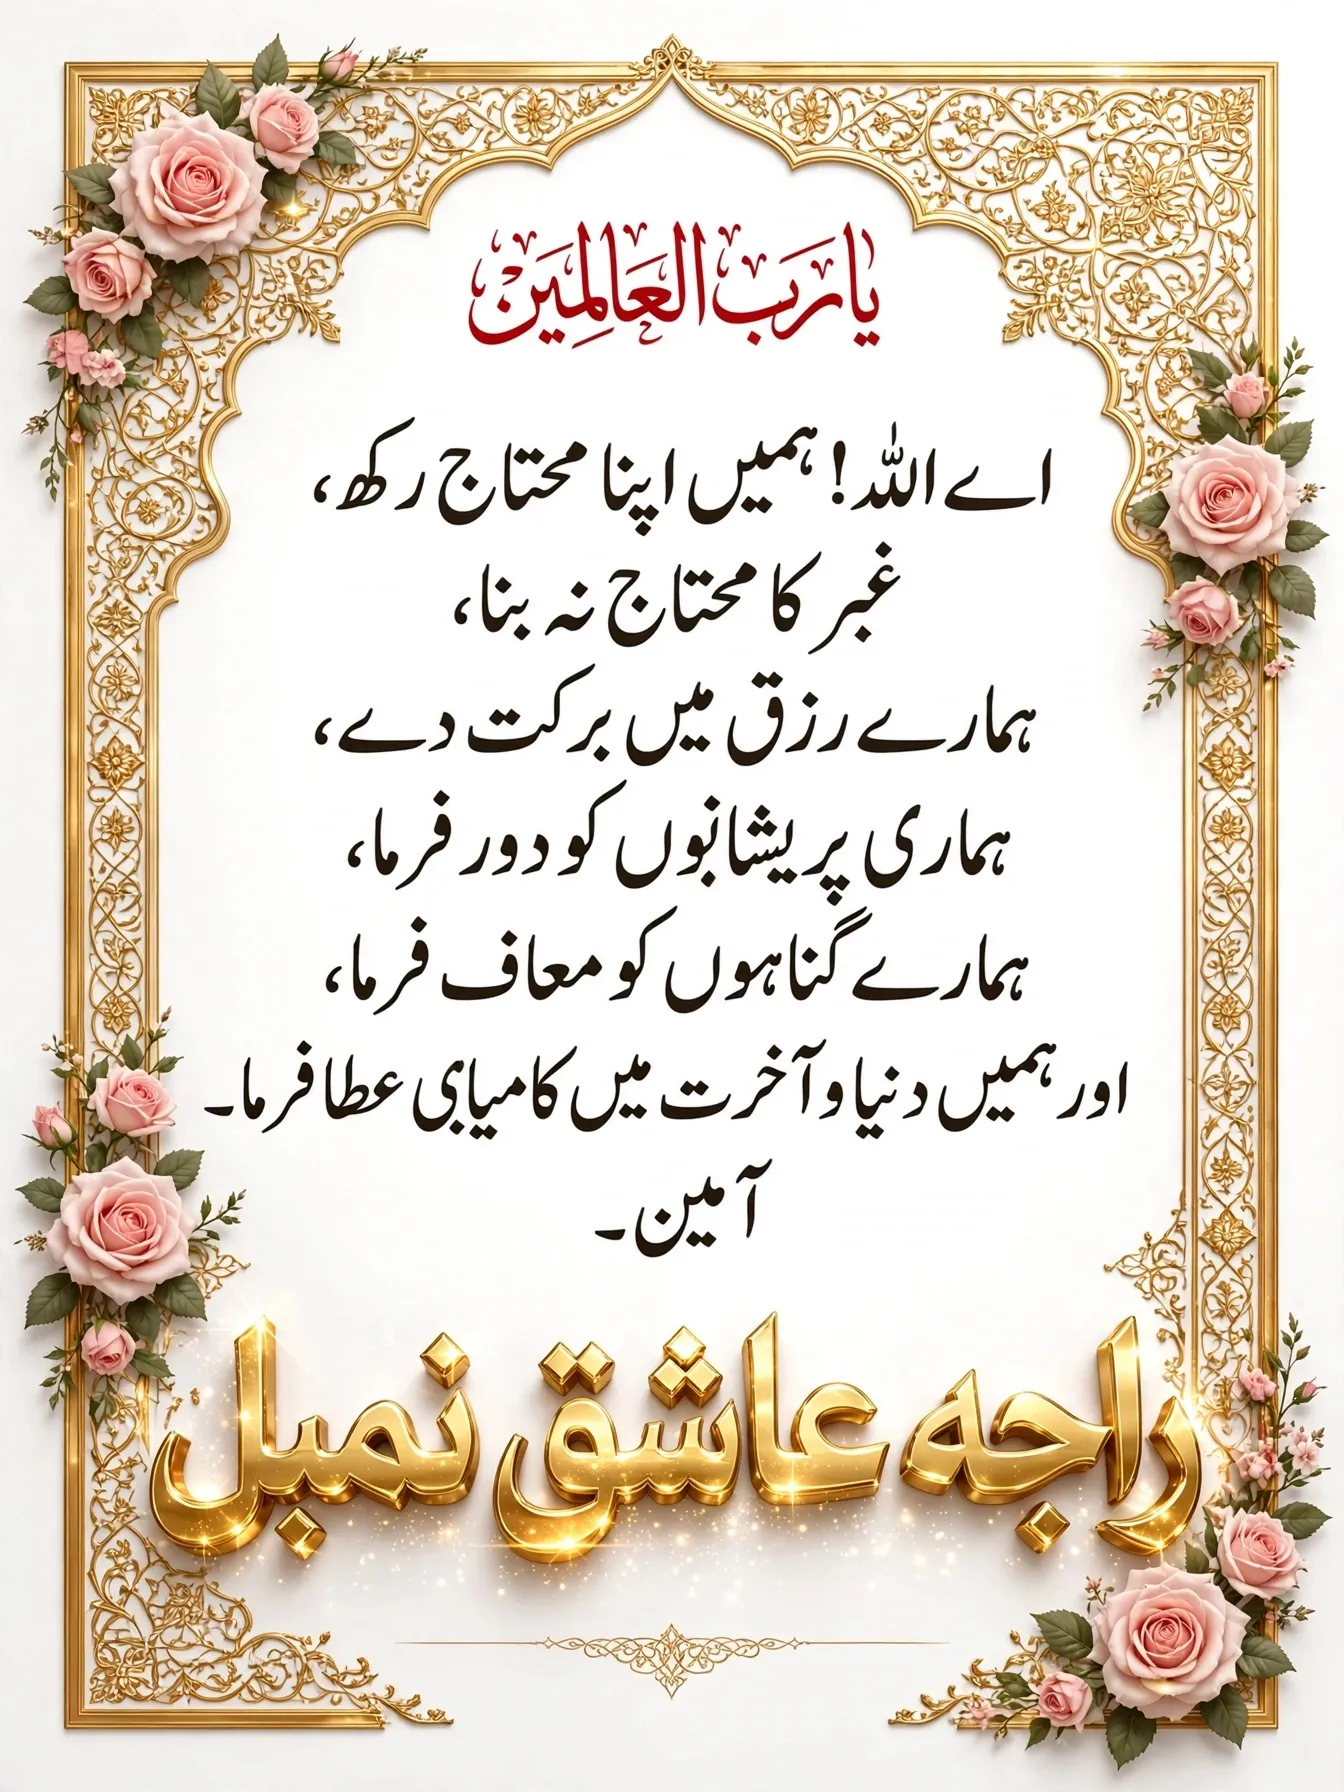 یا رَبَّ الْعَالَمِیْن
اے اللہ! ہمیں اپنا محتاج رکھ،
غبر کا محتاج نہ بنا،
ہمارے رزق میں برکت دے،
ہماری پریشانبوں کو دور فرما،
ہمارے گناہوں کو معاف فرما،
اور ہمیں دنیا و آخرت میں کامیابی عطا فرما۔
آمین۔
راجہ عاشق نمبل